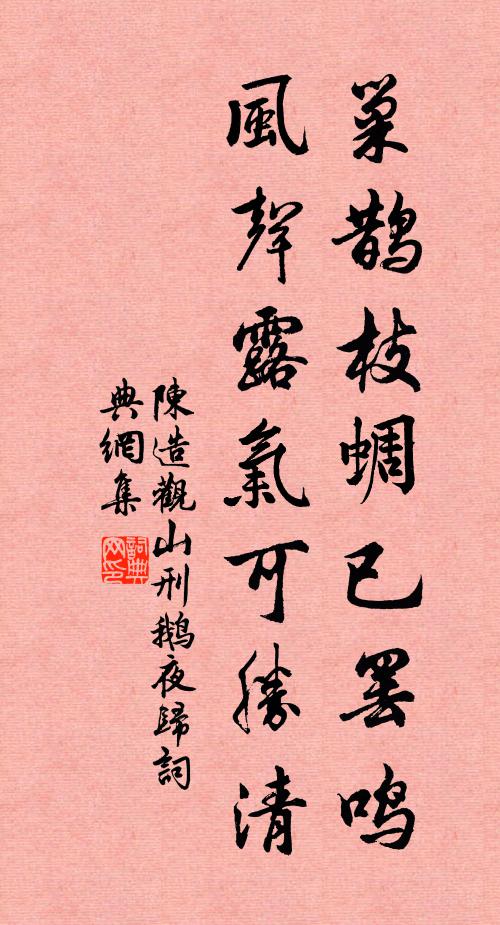 巢鹊枝蜩已罢鸣
風聲露氣可勝清
陳造觀山刑鹅夜歸詞
典網集
詞典
网印